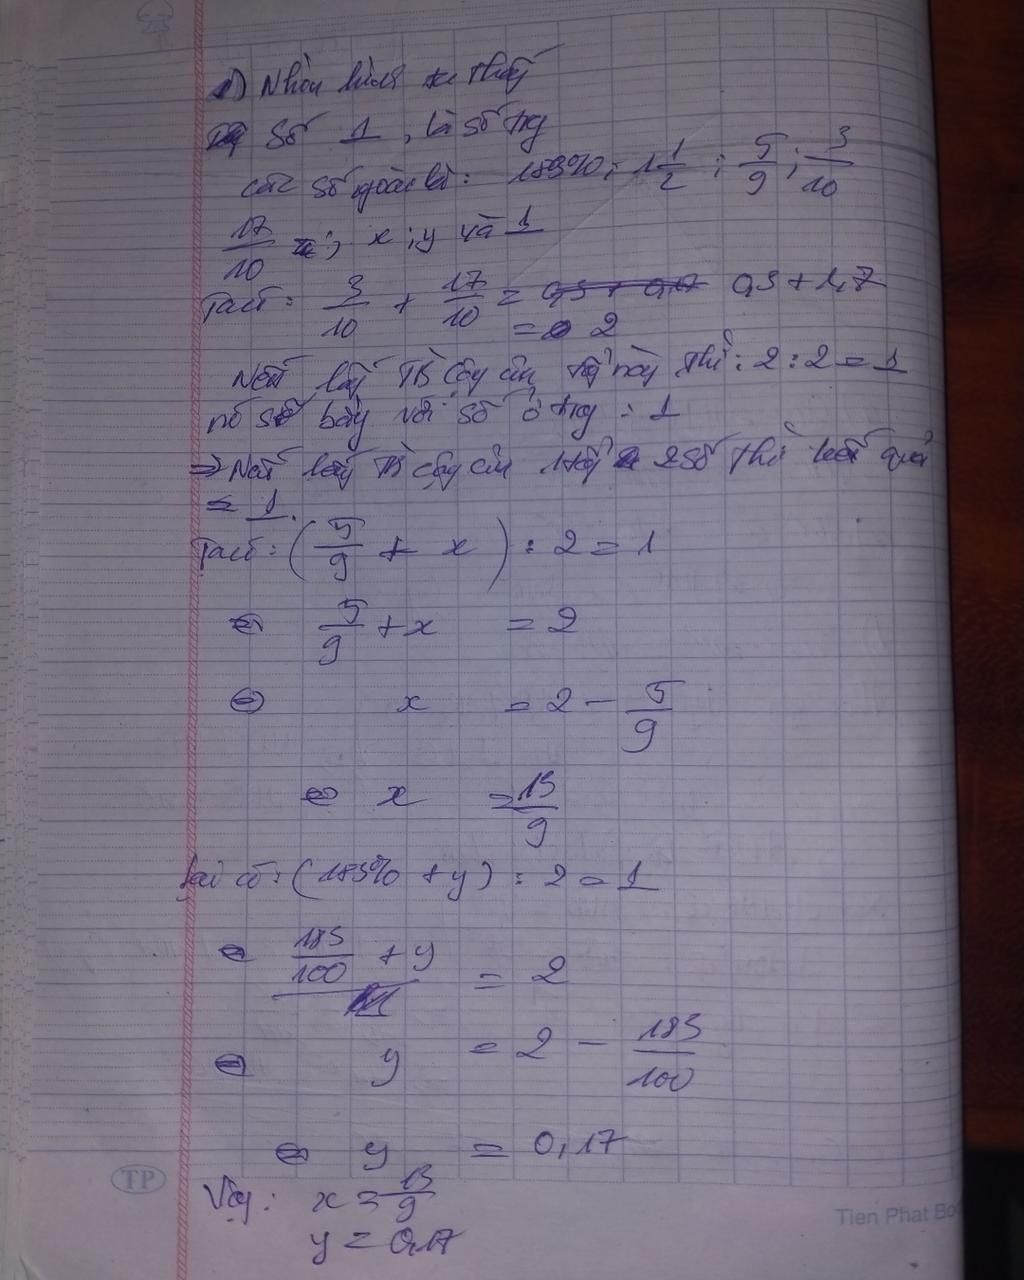 1) Nhìn hình ta thấy
Số 1, là số trg
các số ngoài là: 183%; 1 1/2; 5/9; 3/10
17/10; x; y và 1
Ta có: 3/10 + 17/10 = 0,3 + 1,7
= 2
Nếu lấy TB cộng của này thì: 2 : 2 = 1
nó số bằng với số ở trg: 1
⇒ Nếu lấy TB cộng của 2 số thì kết quả
= 1.
Ta có: (5/9 + x) : 2 = 1
⇔ 5/9 + x = 2
⇔ x = 2 - 5/9
⇔ x = 13/9
Lại có: (183% + y) : 2 = 1
⇔ 183/100 + y = 2
⇔ y = 2 - 183/100
⇔ y = 0,17
Vậy: x = 13/9
y = 0,17
TP
Tien Phat Bo